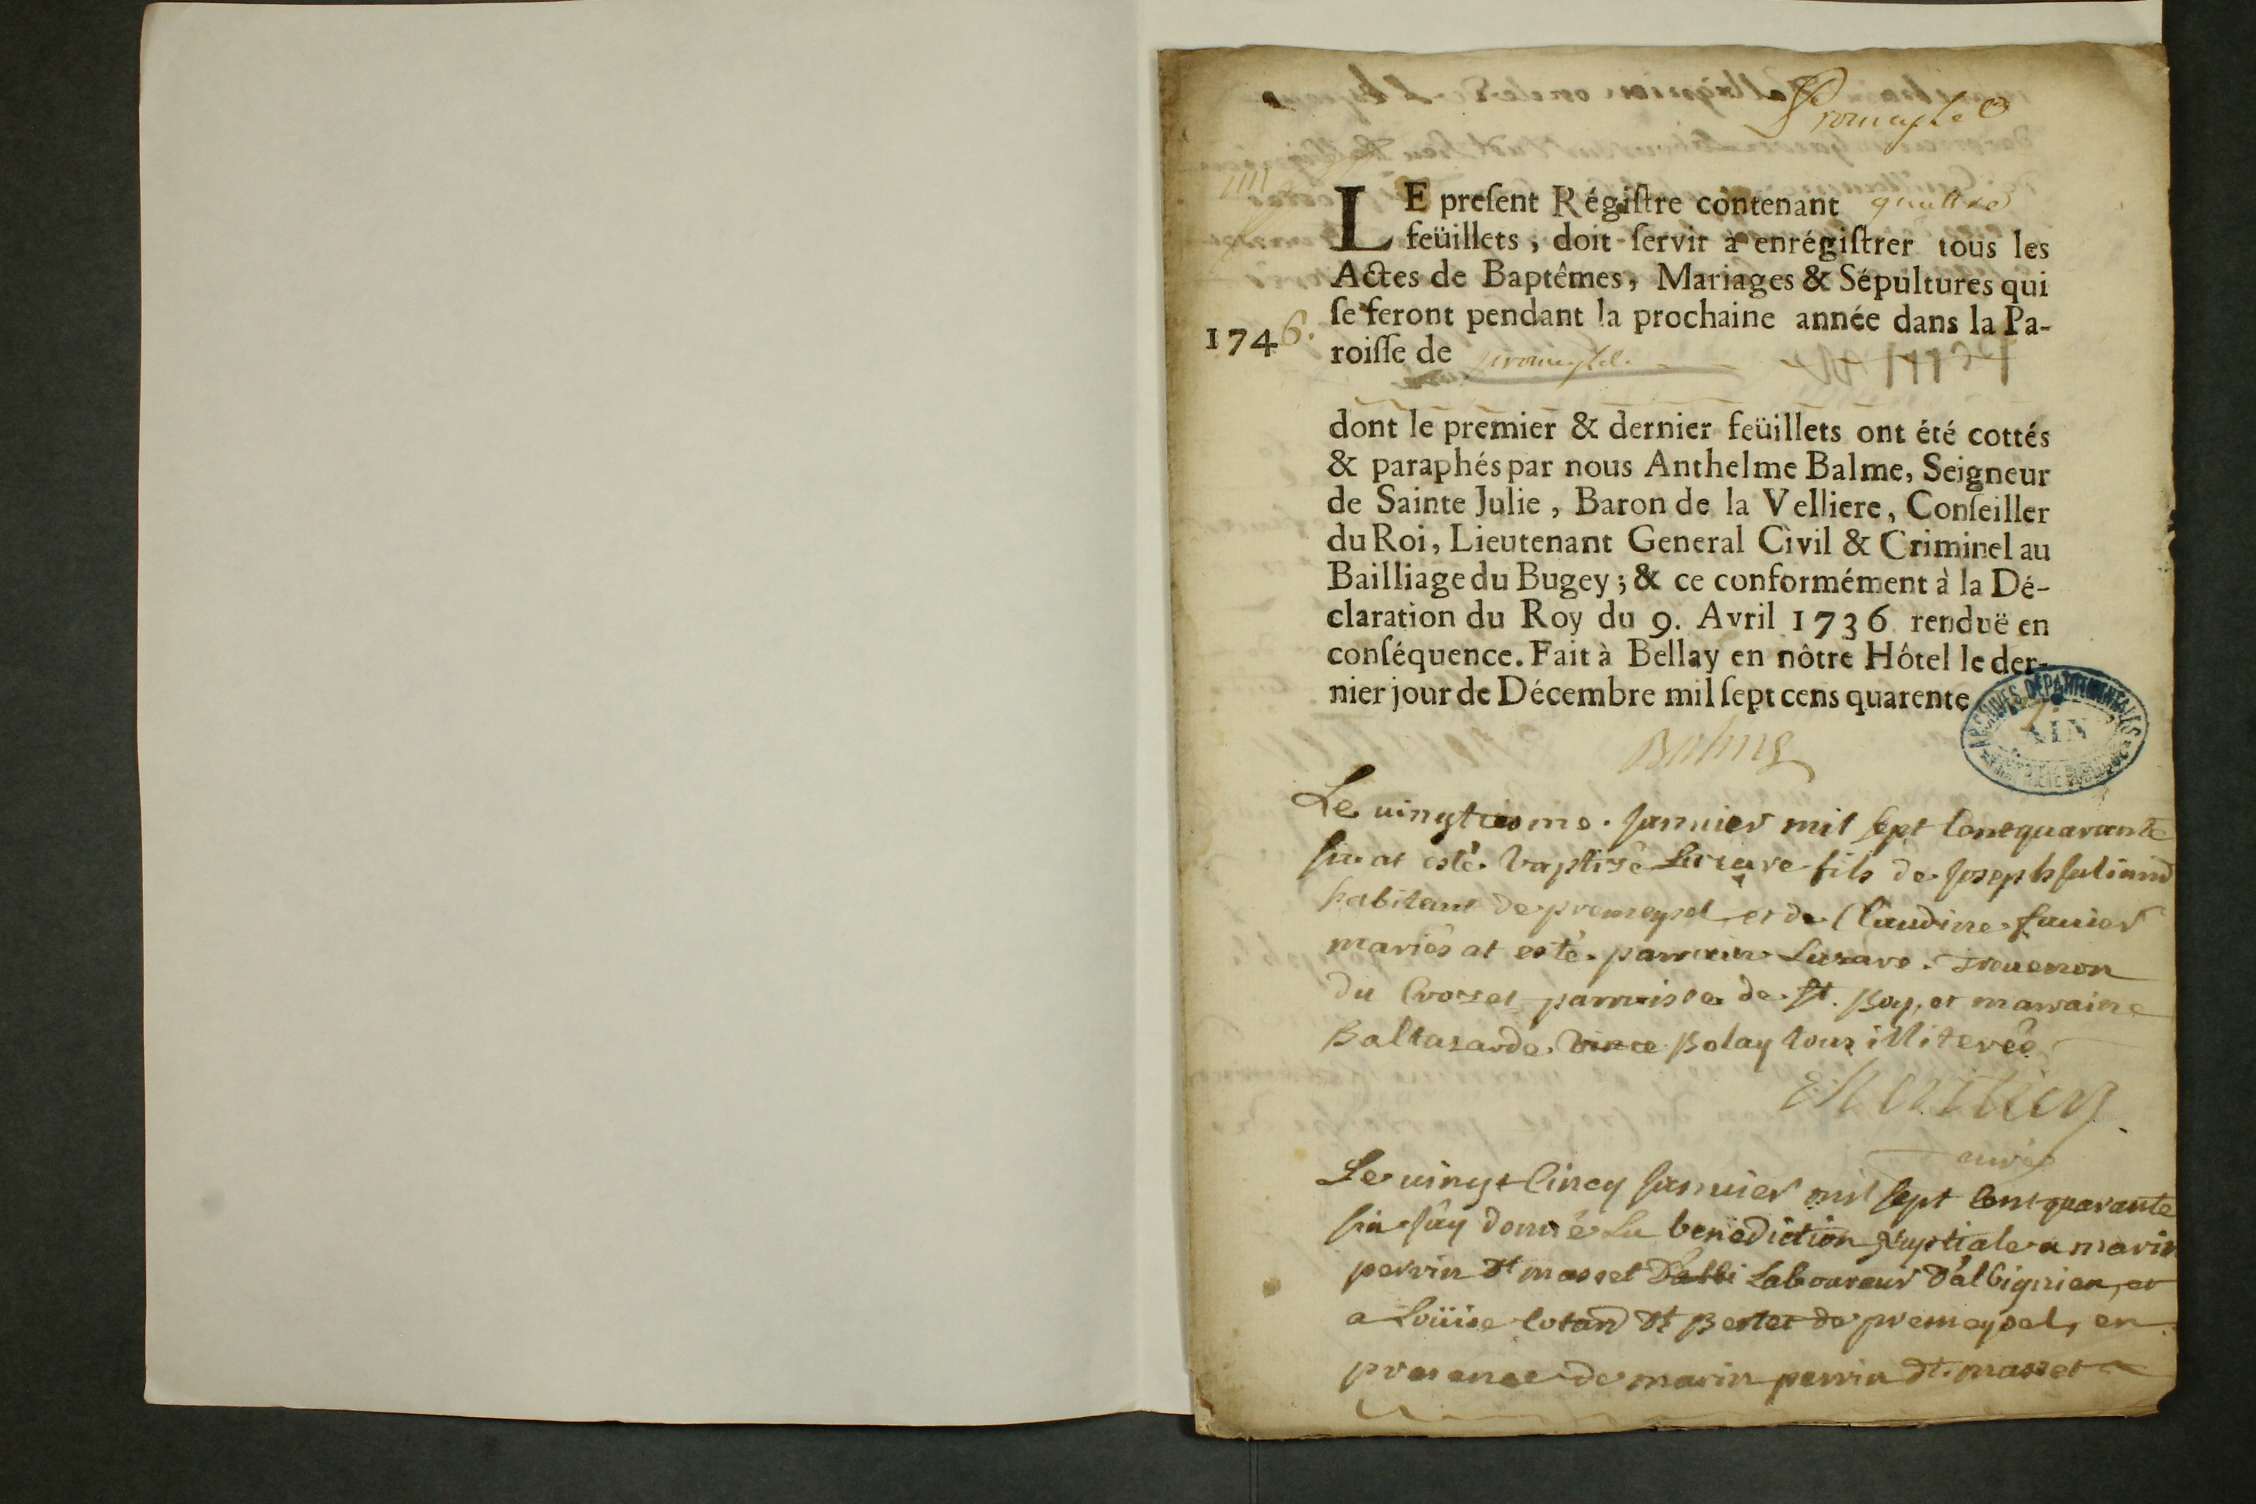 LE preſent Régiſtre contenant quattre
feüillets, doit ſervir à enrégiſtrer tous les
Actes de Baptêmes, Mariages & Sépultures qui
ſe feront pendant la prochaine année dans la Pa-
1746. roiſſe de
dont le premier & dernier feüillets ont été cottés
& paraphés par nous Anthelme Balme, Seigneur
de Sainte Julie, Baron de la Velliere, Conſeiller
du Roi, Lieutenant General Civil & Criminel au
Bailliage du Bugey; & ce conformément à la Dé-
claration du Roy du 9. Avril 1736 renduë en
conſéquence. Fait à Bellay en nôtre Hôtel le der-
nier jour de Décembre mil ſept cens quarente
ARCHIVES DÉPARTEMENTALES
AIN
Balme
Le vingtiesme. Janvier mil sept cent quarante
six at esté. baptisé Lazare fils de Joseph Juliand
habitant de premeysel et de Claudine
mariés at esté. parrain Lazare.
du Crozet parroisse de St. Boy, et marraine
Baltazarde. Bolay tous illiterés
curé
Le vingt Cincq Janvier mil sept cent quarante
six J'ay donné La benediction Nuptiale a marin
perrin dt masset Laboureur d'albignieu, et
a Loüise Cotand dt Bertet de premeysel, en
presence de marin perrin dt. masset